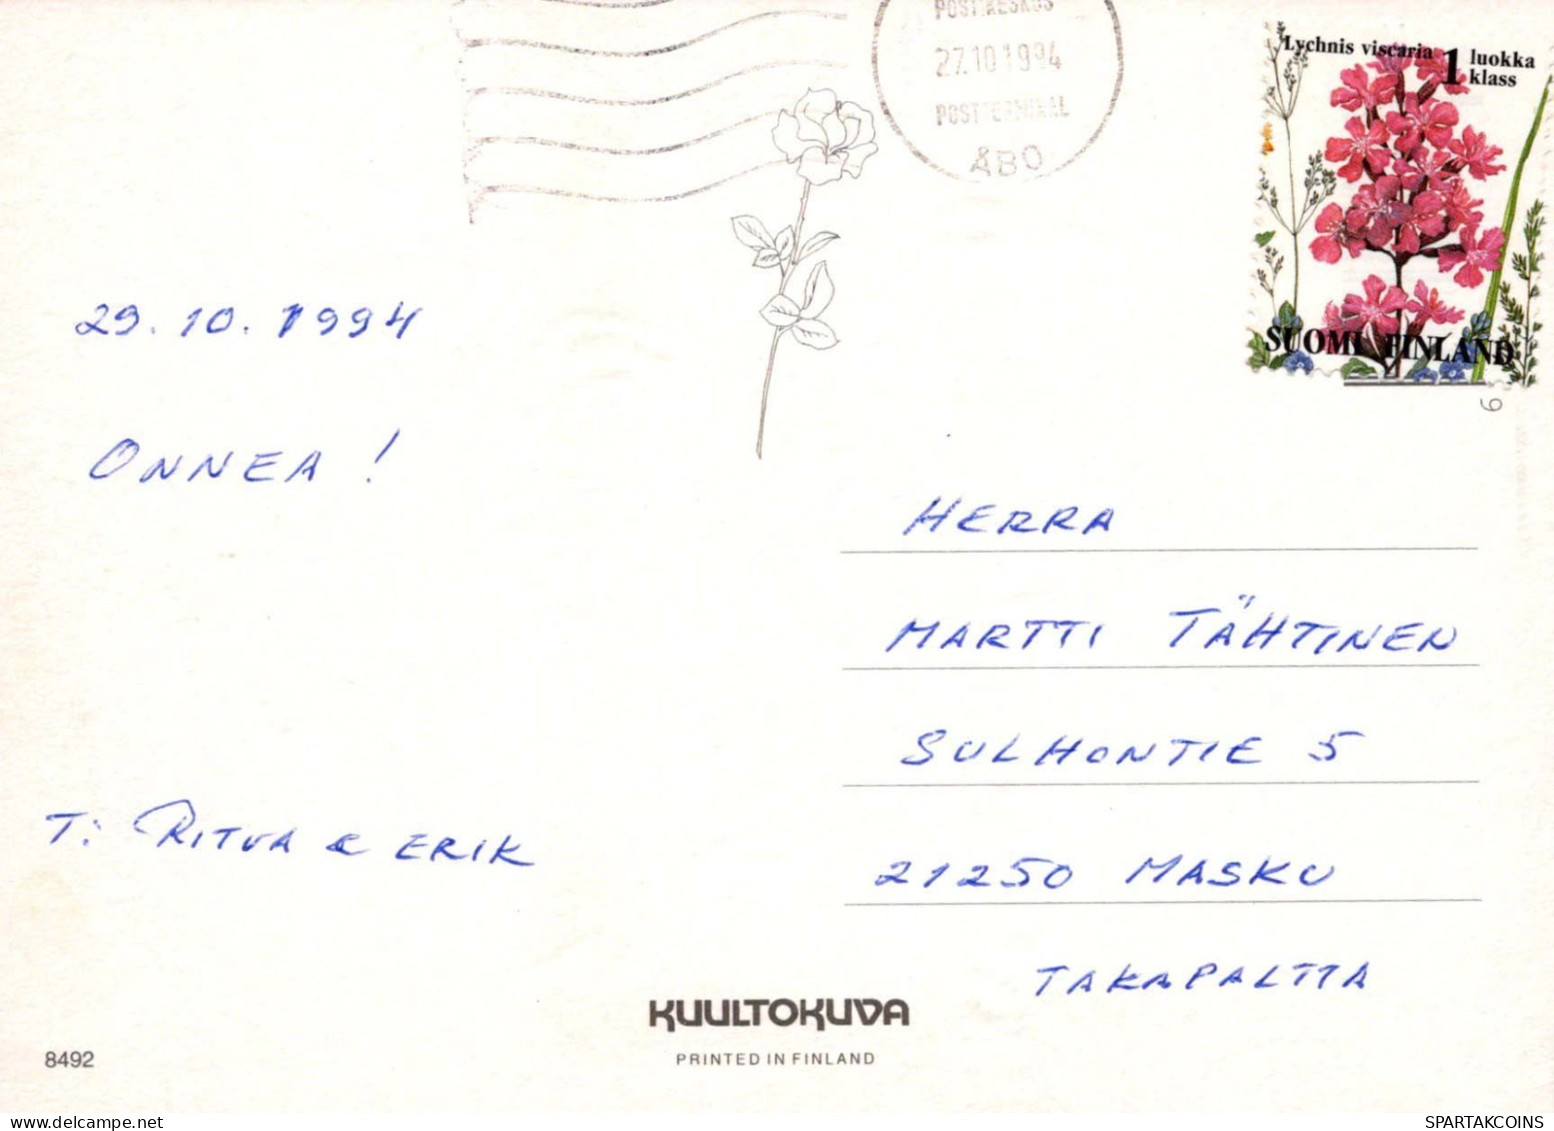 POSTIKESKUS
27.10 1994
POSTTERMINAL
ÅBO
Lychnis viscaria 1 luokka
klass
SUOMI FINLAND
6
29.10.1994
ONNEA!
T: RITVA & ERIK
HERRA
MARTTI TÄHTINEN
SULHONTIE 5
21250 MASKU
TAKAPALTTA
KUULTOKUVA
PRINTED IN FINLAND
8492
www.delcampe.net
SPARTAKCOINS